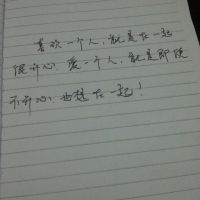 喜欢一个人，就是在一起
很开心，爱一个人，就是即使
不开心，也想在一起！